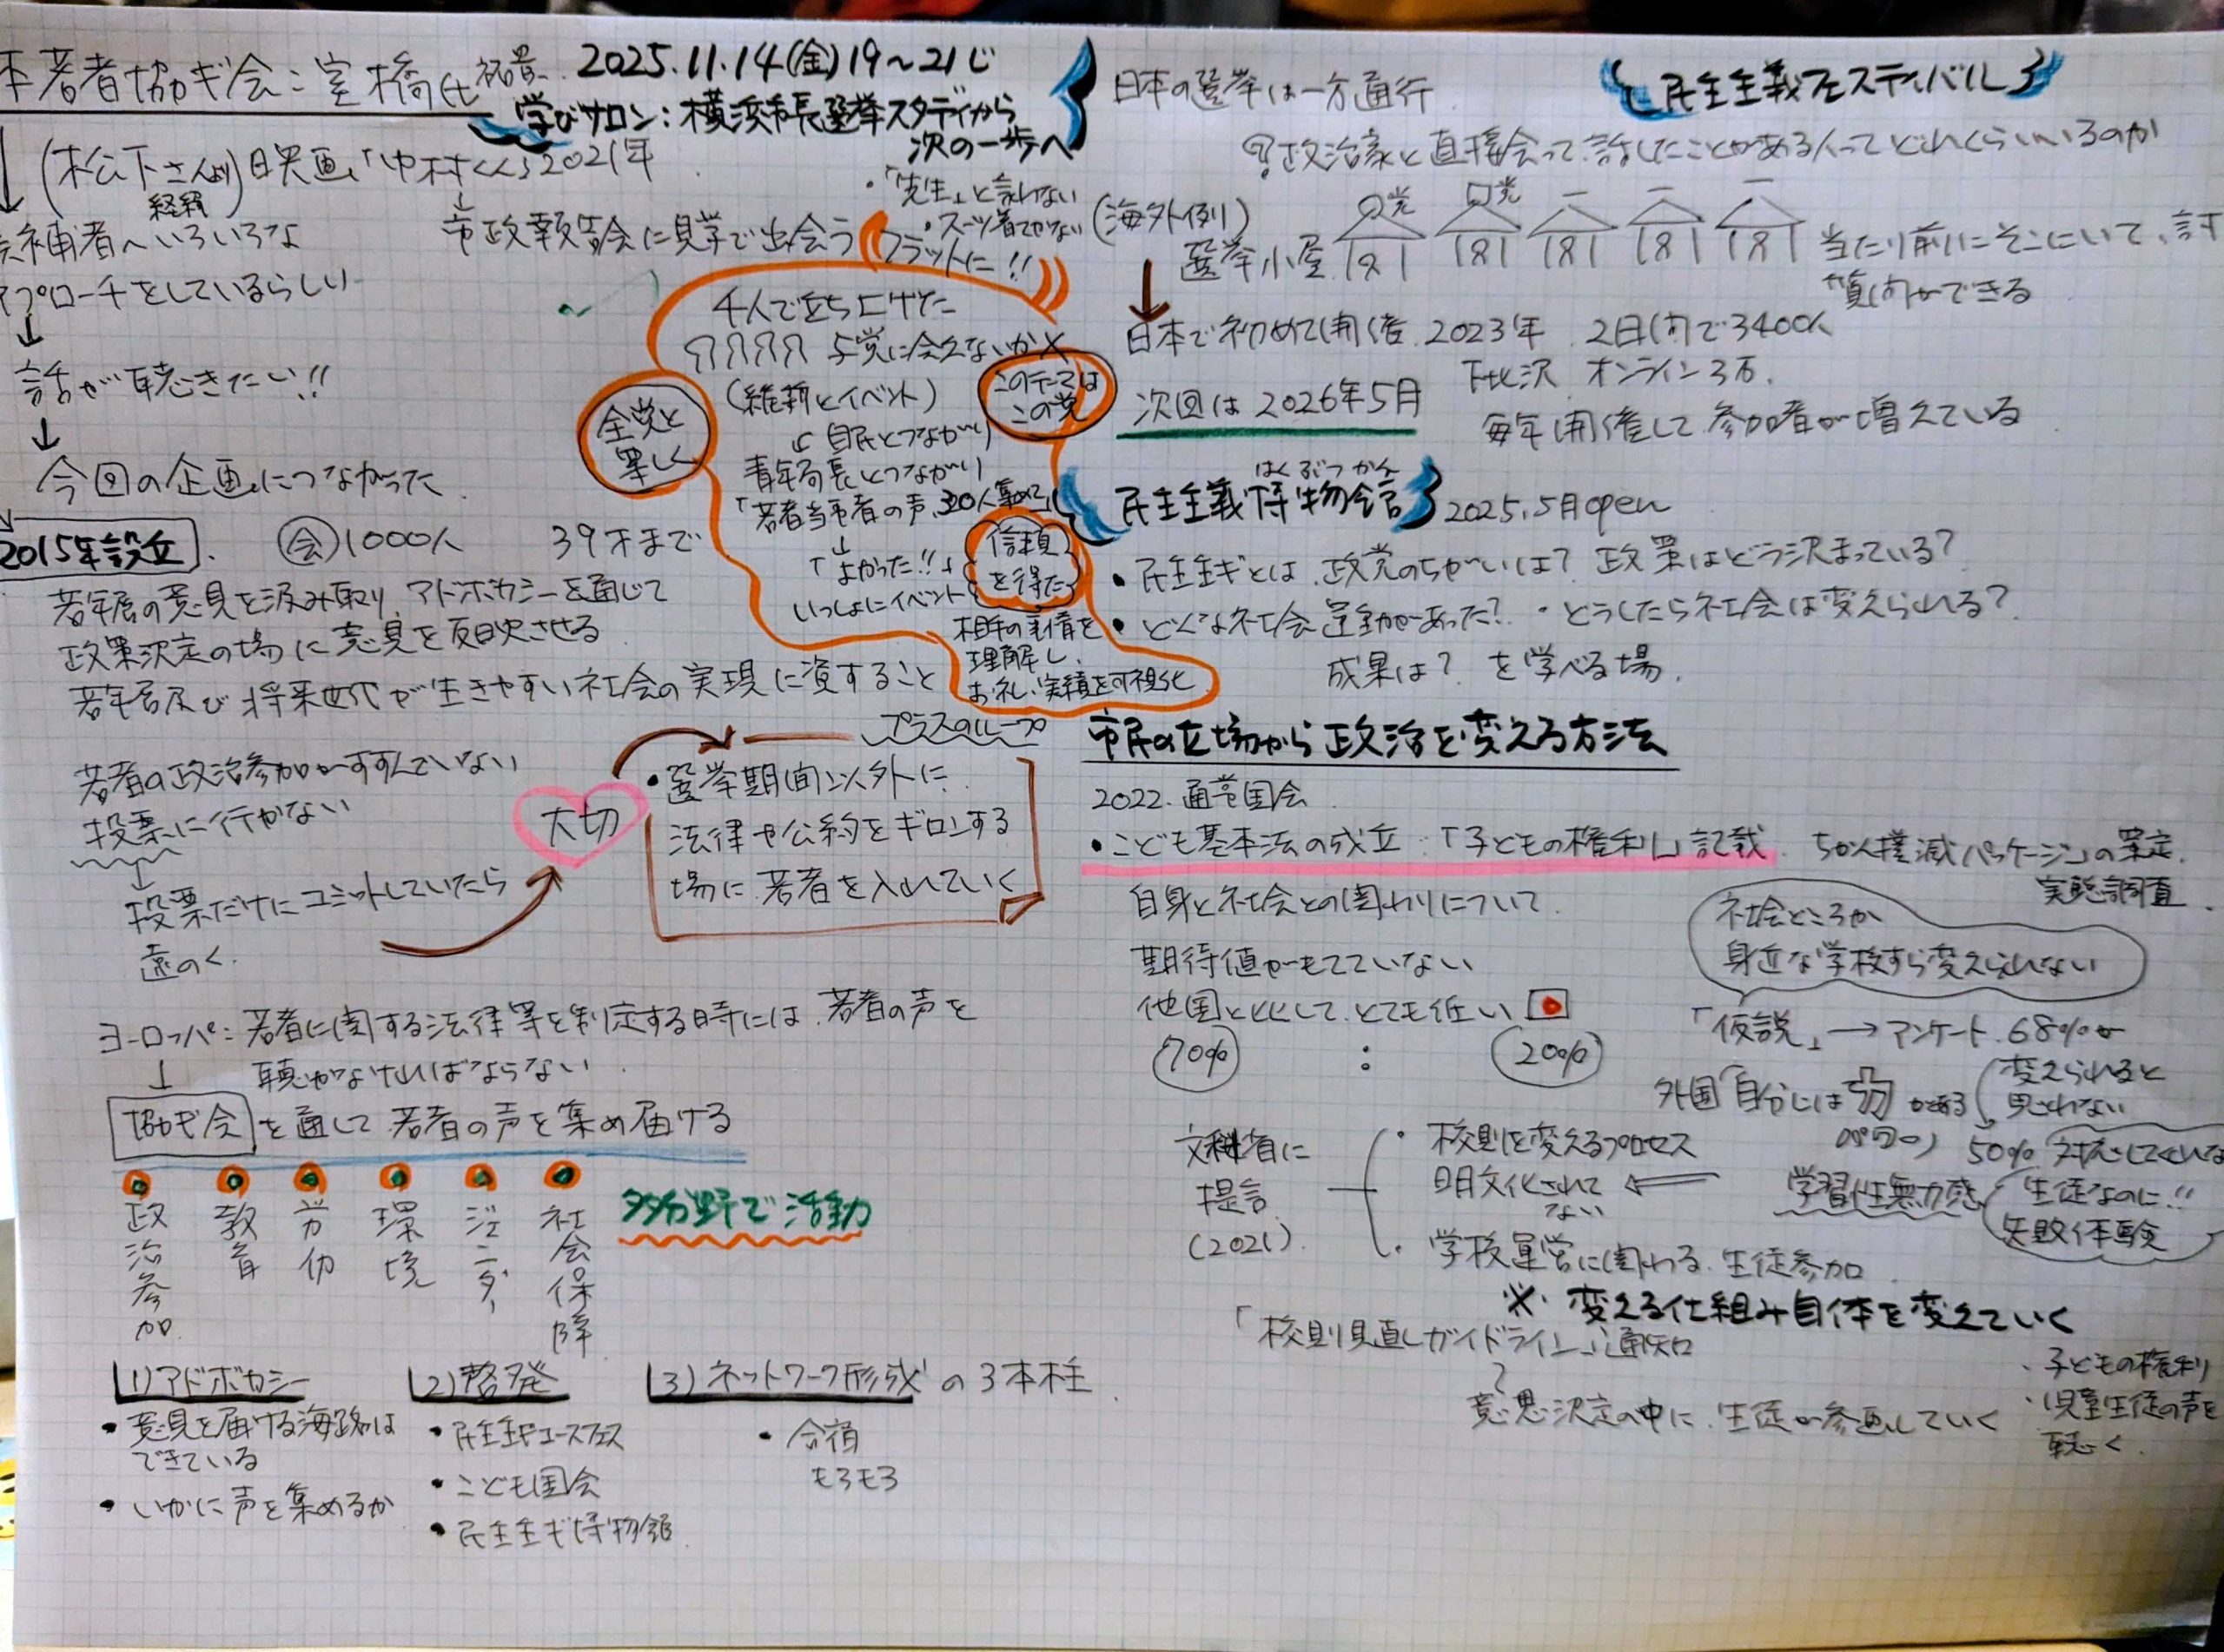 本若者協ギ会:室橋氏 祐貴
2025.11.14(金)19〜21じ
学びサロン:横浜市長選挙スタディから
次の一歩へ
(松下さんより)映画「中村くん」2021年
経緯
候補者へいろいろな
アプローチをしているらしい
↓
話が聴きたい!!
↓
今回の企画につながった
↓
市政報告会に見学で出会う
・「先生」と言わない
・スーツ着てかない
フラットに!!
4人で立ち上げた
与党に会えないか×
(維新とイベント)
自民とつながり
青年局長とつながり
「若者当事者の声、320人集めて」
↓
「よかった!!」
いっしょにイベント
全党と
等しく
このテーマは
この党
信頼
を得た
相手の事情を
理解し、
お礼、実績を可視化
プラスのループ
2015年設立
会 1000人 39才まで
若年層の意見を汲み取り アドボカシーを通じて
政策決定の場に意見を反映させる
若年層及び将来世代が生きやすい社会の実現に資すること
若者の政治参加がすすんでいない
投票に行かない
↓
投票だけにコミットしていたら
遠のく
大切
・選挙期間以外に
法律や公約をギロンする
場に若者を入れていく
ヨーロッパ:若者に関する法律等を制定する時には 若者の声を
聴かなければならない
↓
協ギ会を通して若者の声を集め届ける
政治参加
教育
労働
環境
ジェンダー
社会保障
多分野で活動
1)アドボカシー
・意見を届ける海路は
できている
・いかに声を集めるか
2)啓発
・民主主ギユースフェス
・こども国会
・民主主ギ博物館
3)ネットワーク形成 の3本柱
・合宿
もろもろ
日本の選挙は一方通行
民主主義フェスティバル
?政治家と直接会って話したことがある人ってどれくらいいるのか
(海外例)
選挙小屋
〇党 □党
当たり前にそこにいて、討
質問ができる
↓
日本で初めて開催 2023年 2日間で3400人
下北沢 オンライン3万
次回は 2026年5月
毎年開催して参加者が増えている
はくぶつかん
民主主義博物館 2025.5月open
・民主主ギとは 政党のちがいは? 政策はどう決まっている?
・どんな社会運動があった? ・どうしたら社会は変えられる?
成果は? を学べる場
市民の立場から政治を変える方法
2022.通常国会
・こども基本法の成立:「子どもの権利」記載
ちかん撲滅パッケージ」の策定
実態調査
自身と社会との関わりについて
期待値がもてていない
他国と比して とても低い
70% : 20%
社会どころか
身近な学校すら変えられない
「仮説」→アンケート 68%が
変えられると
思わない
外国「自分には力がある
パワー)
50% 対応してくれな
生徒なのに!!
失敗体験
学習性無力感
文科省に
提言
(2021)
・校則を変えるプロセス
明文化されて
ない
・学校運営に関わる 生徒参加
※ 変える仕組み自体を変えていく
「校則見直しガイドライン」通知
意思決定の中に 生徒が参画していく
・子どもの権利
・児童生徒の声を
聴く